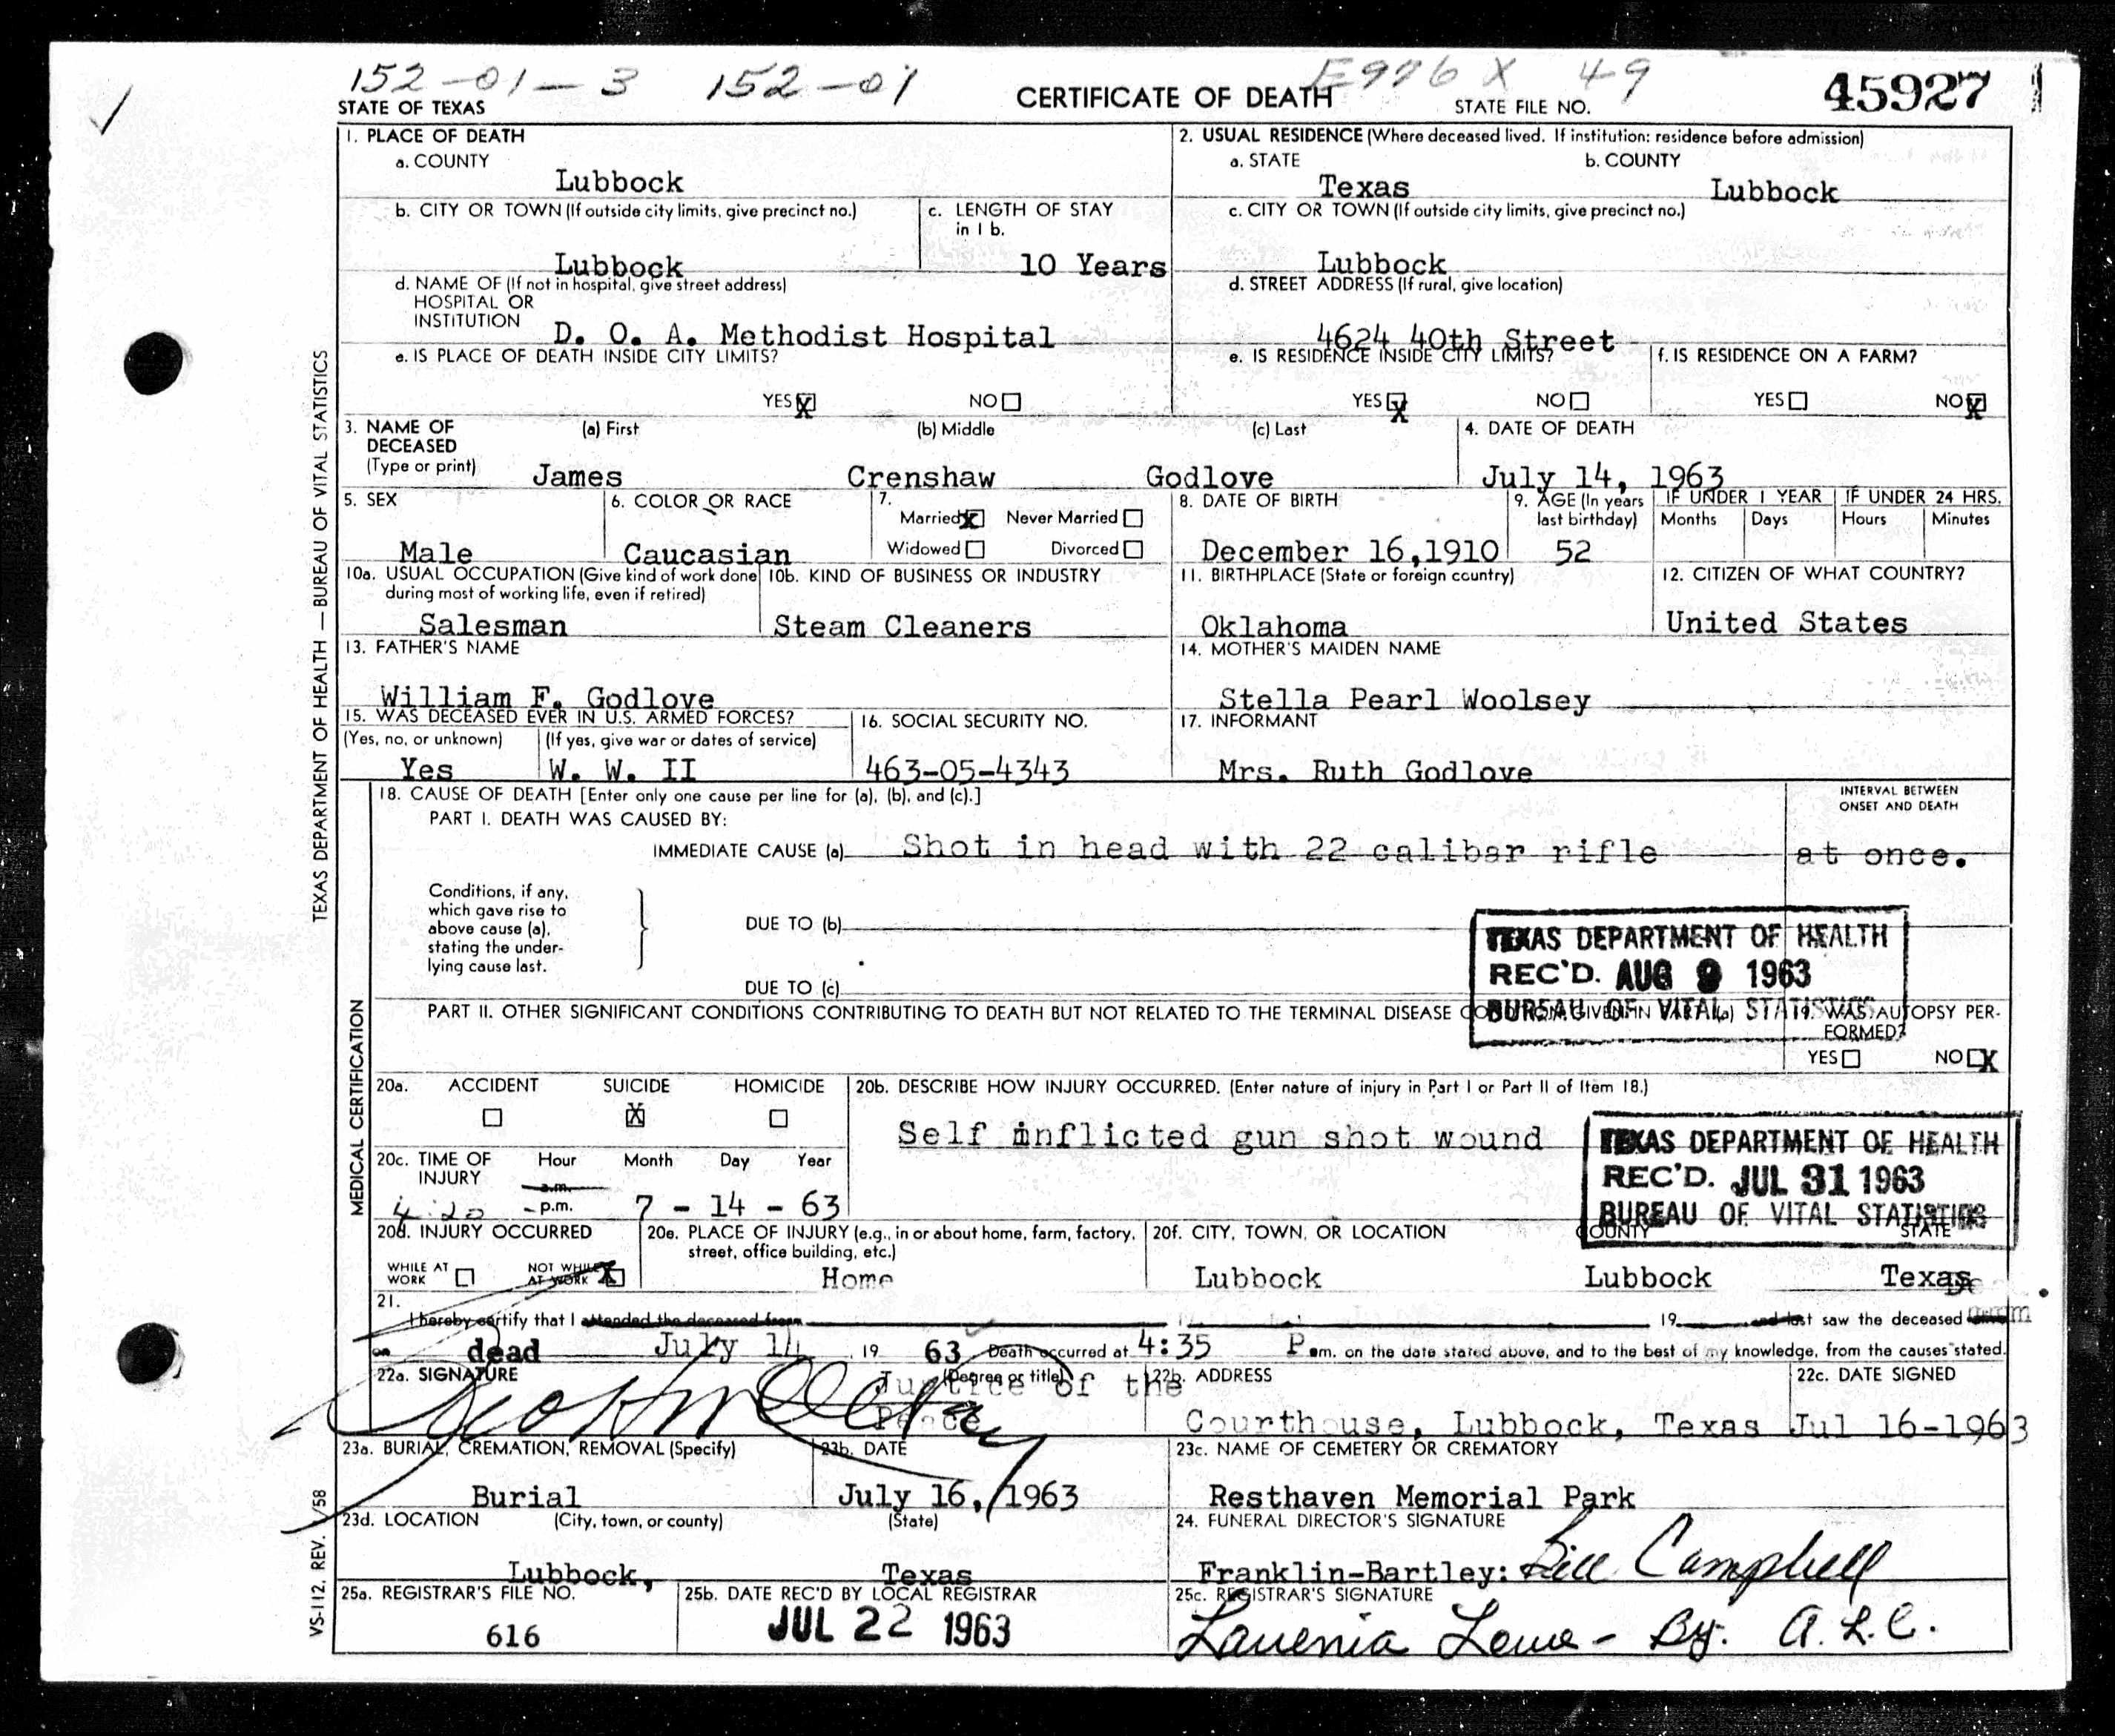 152-01-3 152-01 E976 X 49
STATE OF TEXAS CERTIFICATE OF DEATH STATE FILE NO. 45927
TEXAS DEPARTMENT OF HEALTH — BUREAU OF VITAL STATISTICS
1. PLACE OF DEATH
a. COUNTY
Lubbock
2. USUAL RESIDENCE (Where deceased lived. If institution: residence before admission)
a. STATE b. COUNTY
Texas Lubbock
b. CITY OR TOWN (If outside city limits, give precinct no.)
Lubbock
c. LENGTH OF STAY
in 1 b.
10 Years
c. CITY OR TOWN (If outside city limits, give precinct no.)
Lubbock
d. NAME OF (If not in hospital, give street address)
HOSPITAL OR
INSTITUTION D. O. A. Methodist Hospital
d. STREET ADDRESS (If rural, give location)
4624 40th Street
e. IS PLACE OF DEATH INSIDE CITY LIMITS?
YES X NO
e. IS RESIDENCE INSIDE CITY LIMITS?
YES X NO
f. IS RESIDENCE ON A FARM?
YES NO X
3. NAME OF
DECEASED
(Type or print)
(a) First (b) Middle (c) Last
James Crenshaw Godlove
4. DATE OF DEATH
July 14, 1963
5. SEX
Male
6. COLOR OR RACE
Caucasian
7.
Married X Never Married
Widowed Divorced
8. DATE OF BIRTH
December 16,1910
9. AGE (In years
last birthday)
52
IF UNDER 1 YEAR
Months Days
IF UNDER 24 HRS.
Hours Minutes
10a. USUAL OCCUPATION (Give kind of work done
during most of working life, even if retired)
Salesman
10b. KIND OF BUSINESS OR INDUSTRY
Steam Cleaners
11. BIRTHPLACE (State or foreign country)
Oklahoma
12. CITIZEN OF WHAT COUNTRY?
United States
13. FATHER'S NAME
William F. Godlove
14. MOTHER'S MAIDEN NAME
Stella Pearl Woolsey
15. WAS DECEASED EVER IN U.S. ARMED FORCES?
(Yes, no, or unknown) (If yes, give war or dates of service)
Yes W. W. II
16. SOCIAL SECURITY NO.
463-05-4343
17. INFORMANT
Mrs. Ruth Godlove
MEDICAL CERTIFICATION
18. CAUSE OF DEATH [Enter only one cause per line for (a), (b), and (c).]
INTERVAL BETWEEN
ONSET AND DEATH
PART I. DEATH WAS CAUSED BY:
IMMEDIATE CAUSE (a) Shot in head with 22 calibar rifle at once.
Conditions, if any,
which gave rise to
above cause (a),
stating the under-
lying cause last.
DUE TO (b)
DUE TO (c)
TEXAS DEPARTMENT OF HEALTH
REC'D. AUG 9 1963
BUREAU OF VITAL STATISTICS
PART II. OTHER SIGNIFICANT CONDITIONS CONTRIBUTING TO DEATH BUT NOT RELATED TO THE TERMINAL DISEASE CONDITION GIVEN IN PART I (a)
19. WAS AUTOPSY PER-
FORMED?
YES NO X
20a. ACCIDENT SUICIDE HOMICIDE
X
20b. DESCRIBE HOW INJURY OCCURRED. (Enter nature of injury in Part I or Part II of Item 18.)
Self inflicted gun shot wound
TEXAS DEPARTMENT OF HEALTH
REC'D. JUL 31 1963
BUREAU OF VITAL STATISTICS
20c. TIME OF
INJURY
Hour Month Day Year
a.m.
4:20 p.m. 7 - 14 - 63
20d. INJURY OCCURRED
WHILE AT
WORK
NOT WHILE
AT WORK X
20e. PLACE OF INJURY (e.g., in or about home, farm, factory,
street, office building, etc.)
Home
20f. CITY, TOWN, OR LOCATION COUNTY STATE
Lubbock Lubbock Texas
21.
I hereby certify that I attended the deceased from 19 and last saw the deceased alive
on dead July 14, 19 63 Death occurred at 4:35 P.m. on the date stated above, and to the best of my knowledge, from the causes stated.
22a. SIGNATURE (Degree or title)
Justice of the
Peace
22b. ADDRESS
Courthouse, Lubbock, Texas
22c. DATE SIGNED
Jul 16-1963
23a. BURIAL, CREMATION, REMOVAL (Specify)
Burial
23b. DATE
July 16, 1963
23c. NAME OF CEMETERY OR CREMATORY
Resthaven Memorial Park
23d. LOCATION (City, town, or county) (State)
Lubbock, Texas
24. FUNERAL DIRECTOR'S SIGNATURE
Franklin-Bartley: Bill Campbell
25a. REGISTRAR'S FILE NO.
616
25b. DATE REC'D BY LOCAL REGISTRAR
JUL 22 1963
25c. REGISTRAR'S SIGNATURE
Lavenia Lowe - By. A. L. C.